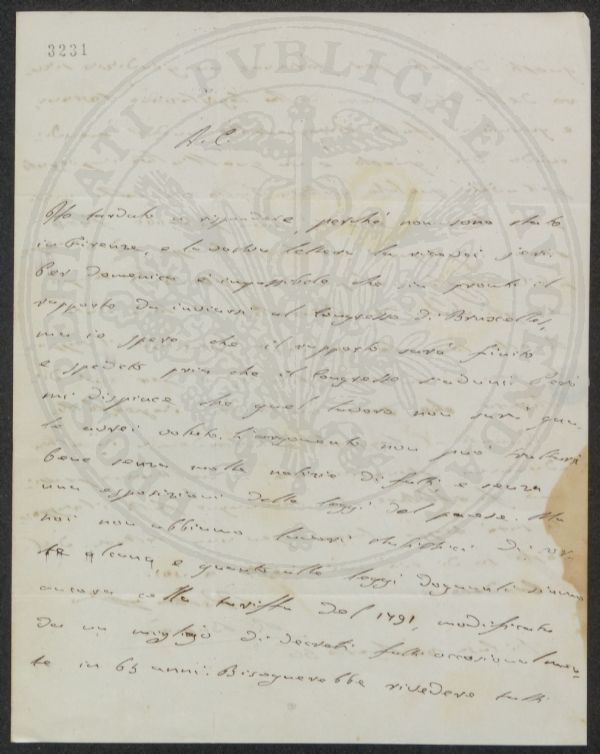 3231
A. C.
Ho tardato a rispondere, perché non sono stato
in Firenze, e la vostra lettera la ricevei jeri.
Per domenica è impossibile che sia pronto il
rapporto da inviarsi al Congresso di Bruxelles,
ma io spero che il rapporto sarà finito
e spedito pria che il Congresso s'aduni. Però
mi dispiace che quel lavoro non sarà qua-
le avrei voluto. L'argomento non può trattarsi
bene senza molte notizie di fatti, e senza
una esposizione delle leggi del paese. Ma
noi non abbiamo lavori statistici di sor-
te alcuna, e quanto alle leggi doganali siamo
ancora colla tariffa del 1791, modificata
da un migliajo di decreti fatti occasionalmen-
te in 65 anni. Bisognerebbe rivedere tutti
PROSPERITATI PVBLICAE AVGENDAE